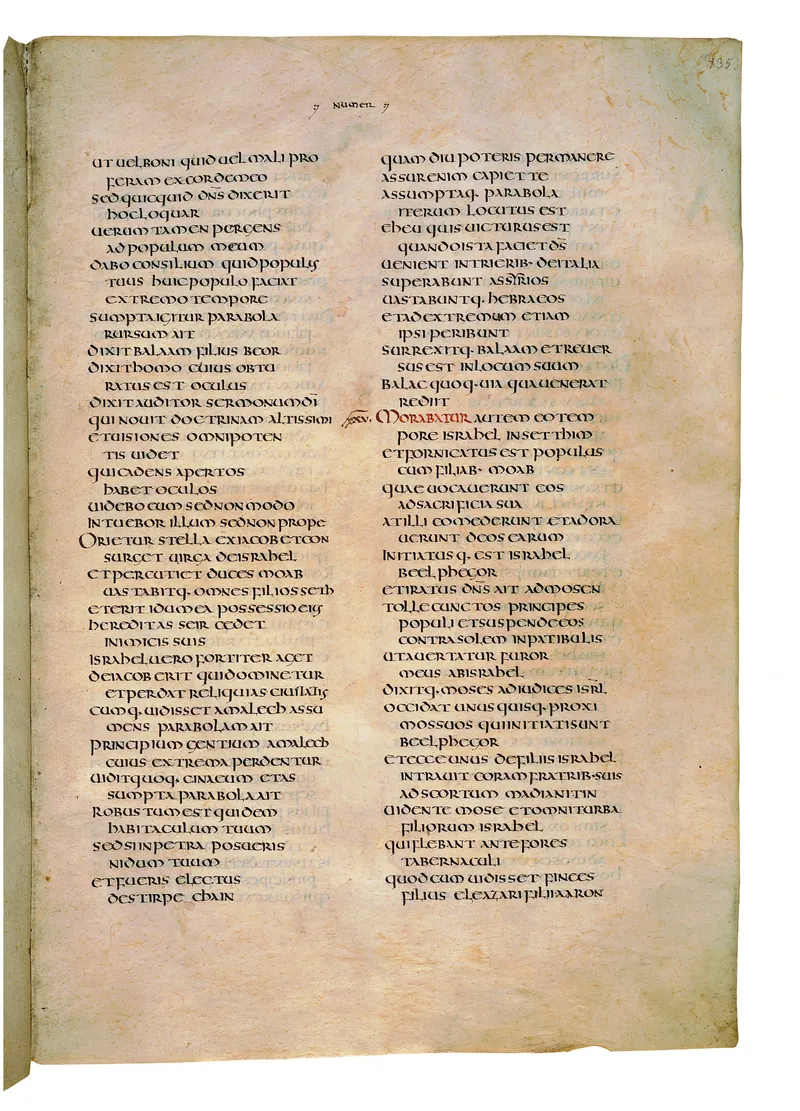 135.
NUMER
UT UEL BONI QUID UEL MALI PRO
FERAM EX CORDE MEO
SED QUICQUID DN̄S DIXERIT
HOC LOQUAR
UERUM TAMEN PERGENS
AD POPULUM MEUM
DABO CONSILIUM QUID POPULUS
TUUS HUIC POPULO FACIAT
EXTREMO TEMPORE
SUMPTA IGITUR PARABOLA
RURSUM AIT
DIXIT BALAAM FILIUS BEOR
DIXIT HOMO CUIUS OBTU
RATUS EST OCULUS
DIXIT AUDITOR SERMONUM DĪ
QUI NOUIT DOCTRINAM ALTISSIMI
ET UISIONES OMNIPOTEN
TIS UIDET
QUI CADENS APERTOS
HABET OCULOS
UIDEBO EUM SED NON MODO
INTUEBOR ILLUM SED NON PROPE
ORIETUR STELLA EX IACOB ET CON
SURGET UIRGA DE ISRAHEL
ET PERCUTIET DUCES MOAB
UASTABITQ· OMNES FILIOS SETH
ET ERIT IDUMEA POSSESSIO EIUS
HEREDITAS SEIR CEDET
INIMICIS SUIS
ISRAHEL UERO FORTITER AGET
DE IACOB ERIT QUI DOMINETUR
ET PERDAT RELIQUIAS CIUITATIS
CUMQ· UIDISSET AMALECH ASSU
MENS PARABOLAM AIT
PRINCIPIUM GENTIUM AMALECH
CUIUS EXTREMA PERDENTUR
UIDIT QUOQ· CINAEUM ET AS
SUMPTA PARABOLA AIT
ROBUSTUM EST QUIDEM
HABITACULUM TUUM
SED SI IN PETRA POSUERIS
NIDUM TUUM
ET FUERIS ELECTUS
DE STIRPE CHAIN
QUAM DIU POTERIS PERMANERE
ASSUR ENIM CAPIET TE
ASSUMPTAQ· PARABOLA
ITERUM LOCUTUS EST
EHEU QUIS UICTURUS EST
QUANDO ISTA FACIET DS̄
UENIENT IN TRIERIB· DE ITALIA
SUPERABUNT ASSYRIOS
UASTABUNTQ· HEBRAEOS
ET AD EXTREMUM ETIAM
IPSI PERIBUNT
SURREXITQ· BALAAM ET REUER
SUS EST IN LOCUM SUUM
BALAC QUOQ· UIA QUA UENERAT
REDIIT
MORABATUR AUTEM EO TEM
PORE ISRAHEL IN SETTHIM
ET FORNICATUS EST POPULUS
CUM FILIAB· MOAB
QUAE UOCAUERUNT EOS
AD SACRIFICIA SUA
AT ILLI COMEDERUNT ET ADORA
UERUNT DEOS EARUM
INITIATUSQ· EST ISRAHEL
BEELPHEGOR
ET IRATUS DN̄S AIT AD MOSEN
TOLLE CUNCTOS PRINCIPES
POPULI ET SUSPENDE EOS
CONTRA SOLEM IN PATIBULIS
UT AUERTATUR FUROR
MEUS AB ISRAHEL
DIXITQ· MOSES AD IUDICES ISRL̄
OCCIDAT UNUSQUISQ· PROXI
MOS SUOS QUI INITIATI SUNT
BEELPHEGOR
ET ECCE UNUS DE FILIIS ISRAHEL
INTRAUIT CORAM FRATRIB· SUIS
AD SCORTUM MADIANITIN
UIDENTE MOSE ET OMNI TURBA
FILIORUM ISRAHEL
QUI FLEBANT ANTE FORES
TABERNACULI
QUOD CUM UIDISSET FINEES
FILIUS ELEAZARI FILII AARON